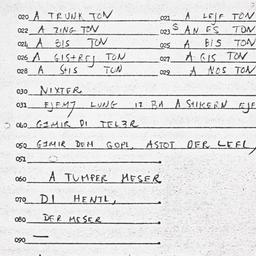 020 A TRUNK TON 021 A LEJF TON
022 A ZING TON 023 S AN ES TON
024 A BIS TON 025 A BIS TON
026 A GIS+REJ TON 027 A GIS TON
028 A STIS TON 029 A NOS TON
030 NIXTER
031 EJEMJ LUNG IZ BA A SHIKERN EJE
040 GEMIR DI TELER
050 GEMIR DEM GOPL, ASTOT DER LEFL,
051
060 A TUMPER MESER
070 DI HENTL,
080 DER MESER
090 —